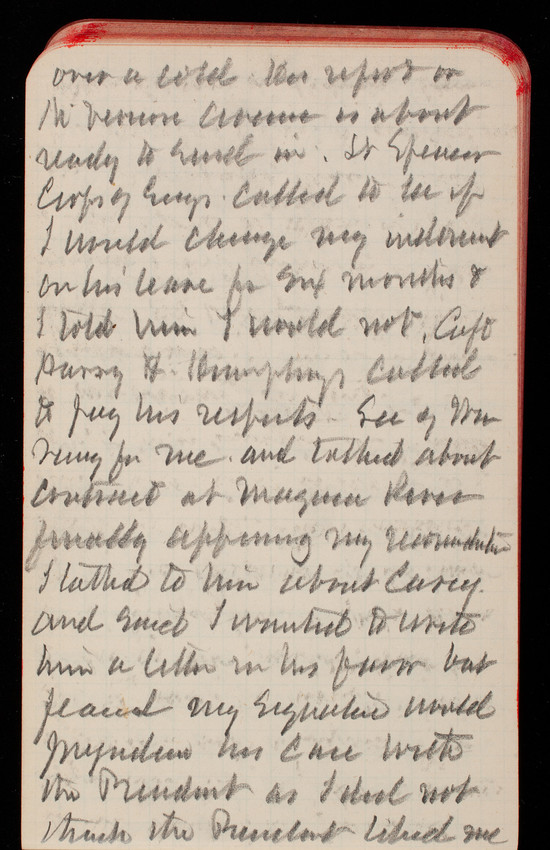 over a cold. His report on
Mt Vernon Avenue is about
ready to send in. Lt Spencer
Corps of Engrs. called to see if
I would change my indorsemt
on his leave for six months &
I told him I would not. Capt
Harry H. Humphreys called
to pay his respects. Sec of War
rang for me and talked about
contract at Maumee River
finally approving my recommendation
I talked to him about Casey
and said I wanted to write
him a letter in his favor but
feared my signature would
prejudice his case with
the President as I did not
think the President liked me